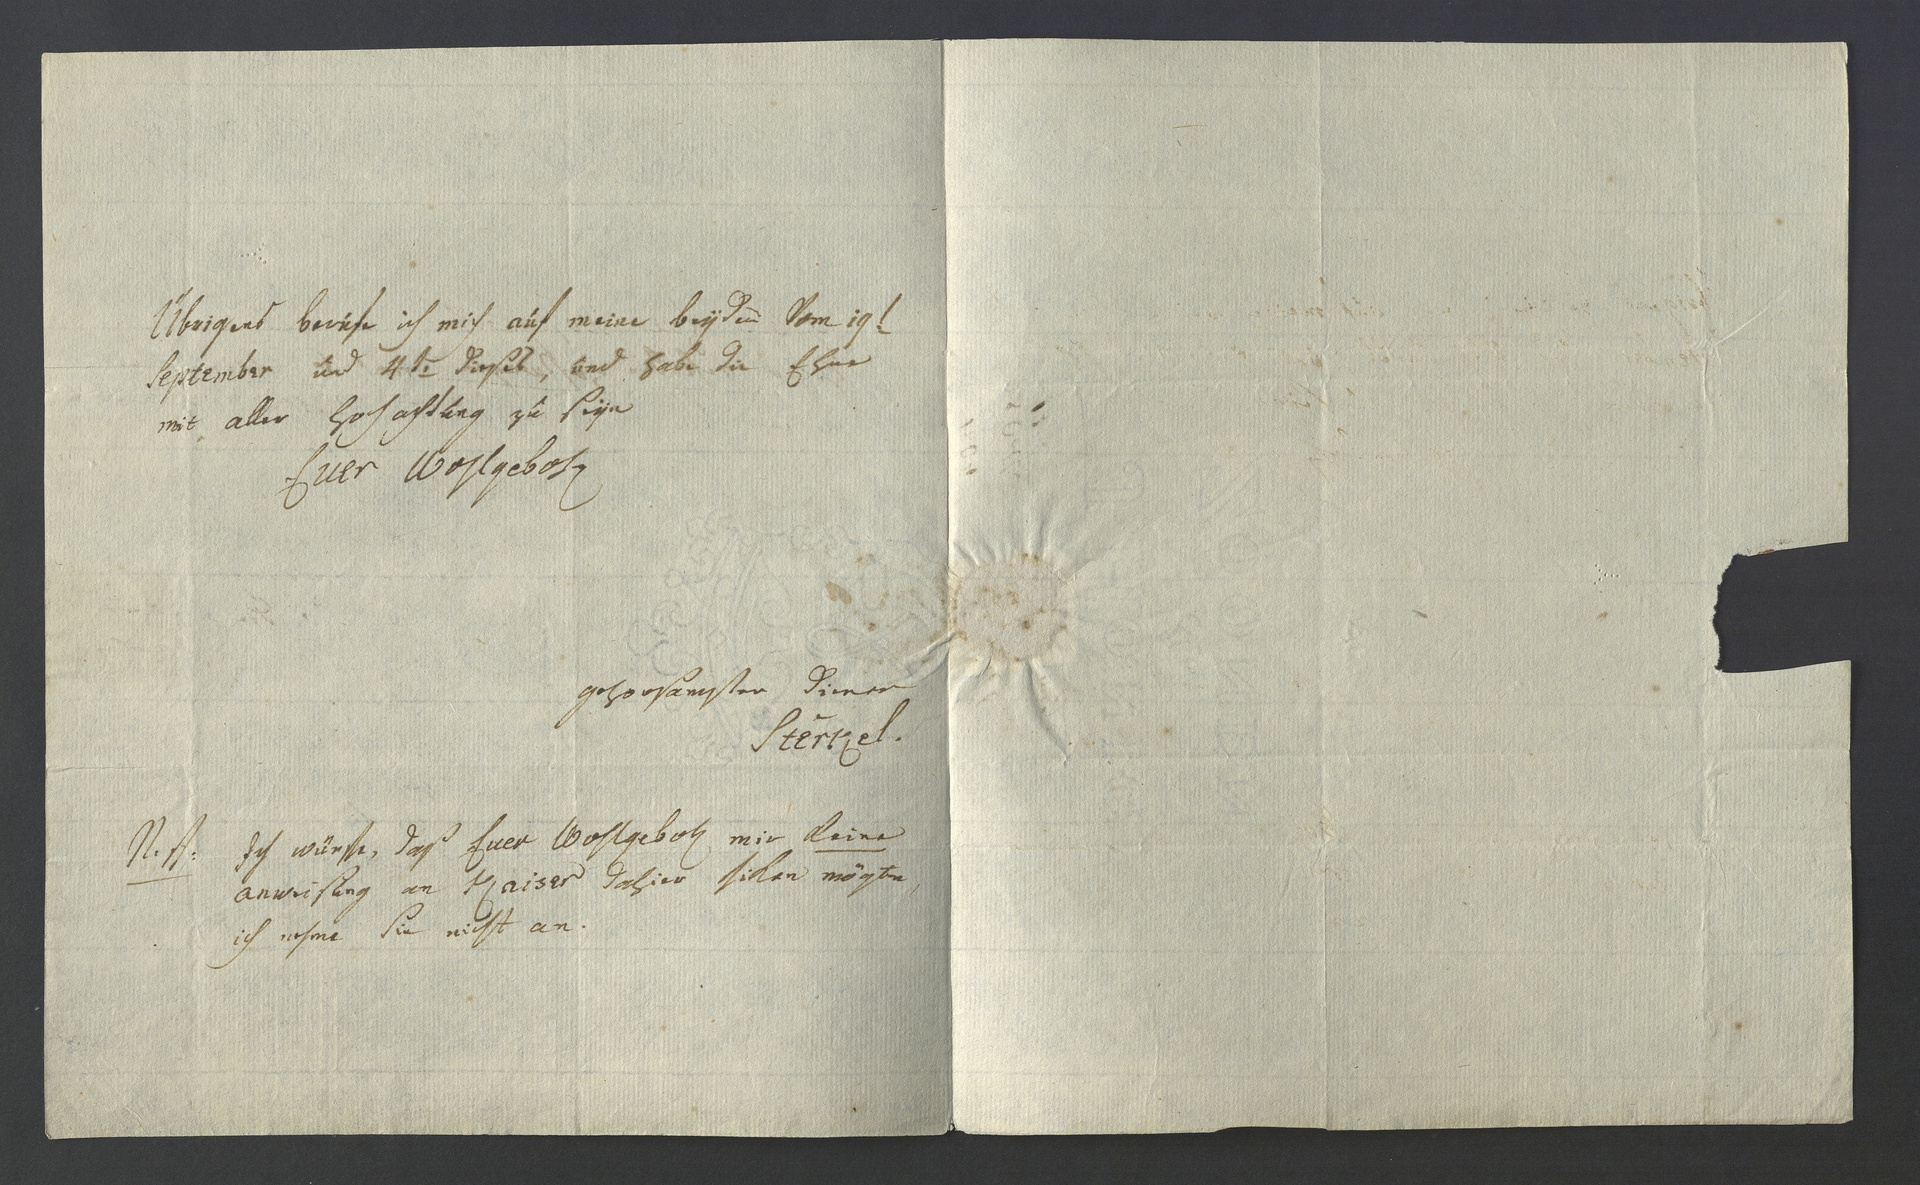 Übrigens berufe ich mich auf meine beyden Vom 19t
September und 4te dieses, und habe die Ehre
mit aller Hochachtung zu seyn
Euer Wohlgebohr
gehorsamster Diener
Sterkel.
N. S: Ich wünsche, daß Euer Wohlgebohr mir keine
anweisung an Kaiser dahier schicken mögten,
ich nehme sie nicht an.